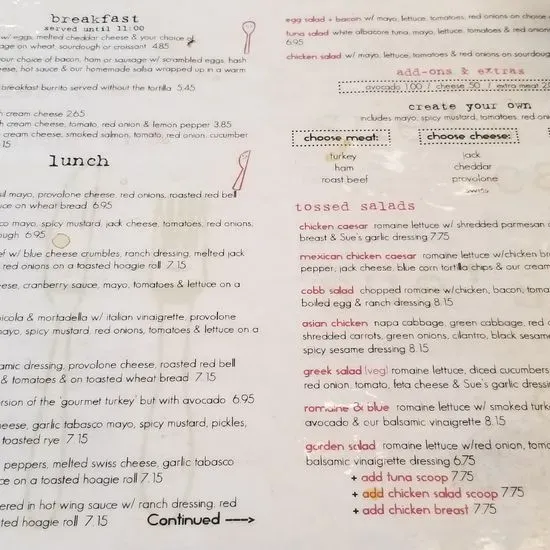 breakfast
served until 11:00
w/ eggs, melted cheddar cheese & your choice of
age on wheat, sourdough or croissant 4.85
your choice of bacon, ham or sausage w/ scrambled eggs, hash
eese, hot sauce & our homemade salsa wrapped up in a warm
breakfast burrito served without the tortilla 5.45
h cream cheese 2.65
h cream cheese, tomato, red onion & lemon pepper 3.85
cream cheese, smoked salmon, tomato, red onion, cucumber
.15
lunch
sil mayo, provolone cheese, red onions, roasted red bell
uce on wheat bread 6.95
co mayo, spicy mustard, jack cheese, tomatoes, red onions,
ough 6.95
ef w/ blue cheese crumbles, ranch dressing, melted jack
red onions on a toasted hoagie roll 7.15
eese, cranberry sauce, mayo, tomatoes & lettuce on a
picola & mortadella w/ italian vinaigrette, provolone
mayo, spicy mustard, red onions, tomatoes & lettuce on a
amic dressing, provolone cheese, roasted red bell
& tomatoes & on toasted wheat bread 7.15
ersion of the 'gourmet turkey' but with avocado 6.95
heese, garlic tabasco mayo, spicy mustard, pickles,
toasted rye 7.15
peppers, melted swiss cheese, garlic tabasco
ce on a toasted hoagie roll 7.15
ered in hot wing sauce w/ ranch dressing, red
sted hoagie roll 7.15
Continued ---->
egg salad + bacon w/ mayo, lettuce, tomatoes, red onions on choice
tuna salad white albacore tuna, mayo, lettuce, tomatoes & red onion
6.95
chicken salad w/ mayo, lettuce, tomatoes & red onions on sourdough
add-ons & extras
avocado 1.00 / cheese .50 / extra meat
create your own
includes mayo, spicy mustard, tomatoes, red onio
choose meat:
turkey
ham
roast beef
choose cheese:
jack
cheddar
provolone
swiss
tossed salads
chicken caesar romaine lettuce w/ shredded parmesan c
breast & Sue's garlic dressing 7.75
mexican chicken caesar romaine lettuce w/ chicken br
pepper, jack cheese, blue corn tortilla chips & our cream
cobb salad chopped romaine w/chicken, bacon, toma
boiled egg & ranch dressing 8.15
asian chicken napa cabbage, green cabbage, red c
shredded carrots, green onions, cilantro, black sesame
spicy sesame dressing 8.15
greek salad (veg) romaine lettuce, diced cucumbers
red onion, tomato, feta cheese & Sue's garlic dressin
romaine & blue romaine lettuce w/ smoked turke
avocado & our balsamic vinaigrette 8.15
garden salad romaine lettuce w/red onion, toma
balsamic vinaigrette dressing 6.75
+ add tuna scoop 7.75
+ add chicken salad scoop 7.75
+ add chicken breast 7.75